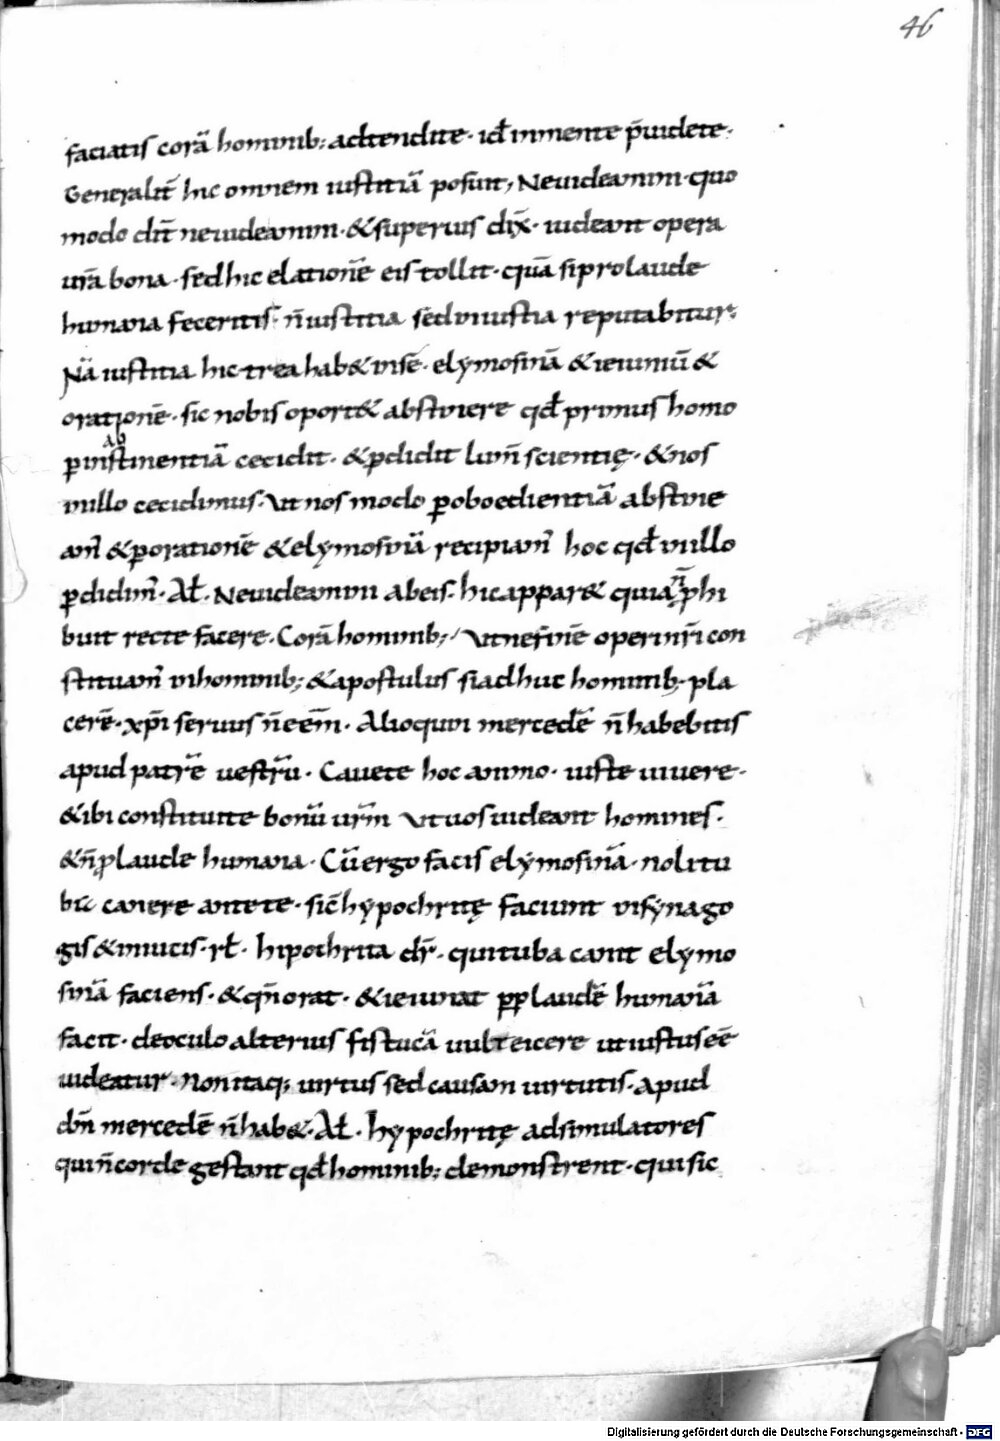 46
faciatis corā hominib; adtendite · id̄ inmente p̄uidete ·
Generalit̄ hic omnem iustitiā posuit, Neuideamini · quo
modo dic̄t neuideamini · &superius dix̄ · uideant opera
ur̄a bona · sed hic elationē eis tollit · quā si prolaude
humana feceritis · n̄ iustitia sed iniustia reputabitur ·
Nā iustitia hic trea hab& inse · elymosinā & ieiuniū &
orationē · sic nobis oport& abstinere qd̄ primus homo
ꝑinabstinentiā cecidit · &ꝑdidit lum̄ scientię · &nos
inillo cecidimus · Ut nos modo ꝑoboedientiā abstine
am̄ &ꝑorationē &elymosinā recipiam̄ hoc qd̄ inillo
ꝑdidim̄ · Al̄ · Neuideamini abeis · hic appar& quia n̄ ꝓhi
buit recte facere · Corā hominib; Utnefinē operi nr̄i con
stituam̄ inhominib; &apostulus si adhuc hominib · pla
cerē · xp̄i seruus n̄ eēm̄ · Alioquin mercedē n̄ habebitis
apud patrē uestrū · Cauete hoc animo · iuste uiuere ·
&ibi constituite bonū ur̄m Ut uos uideant homines ·
&n̄ ꝓlaude humana · Cū ergo facis elymosinā · noli tu
bic canere ante te · sic̄ hypochritę faciunt insynago
gis &inuicis · rl̄ · hipochrita dr̄ · quituba canit elymo
sinā faciens · &qn̄ orat · &ieiunat ꝓp laudē humanā
facit · deoculo alterius fistucā uult eicere ut iustus eē
uideatur · Non itaq; uirtus sed causam uirtutis · apud
dm̄ mercedē n̄ hab& · Al̄ · hypochritę adsimulatores
qui n̄ corde gestant qd̄ hominib; demonstrent · qui sic
Digitalisierung gefördert durch die Deutsche Forschungsgemeinschaft - DFG